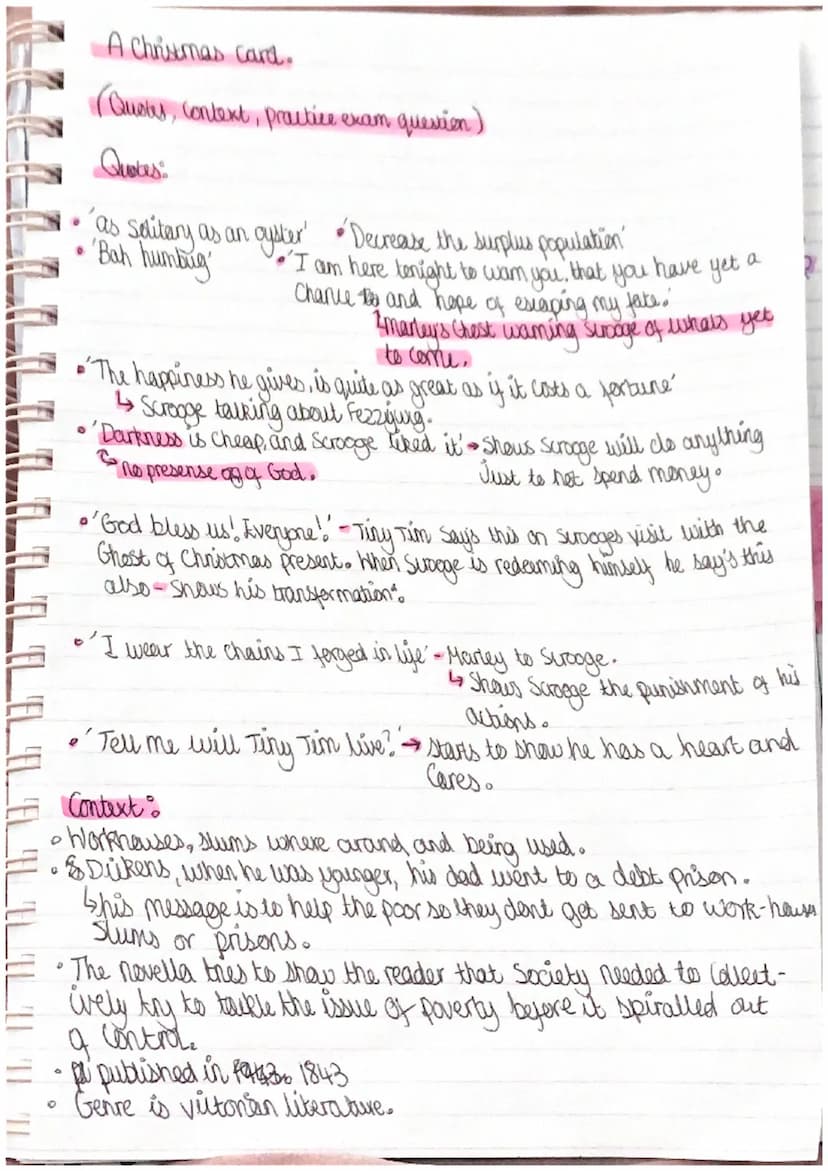 A Christmas Card.
(Quotes, context, practice exam question)
Quotes:
• 'as solitary as an oyster' • 'Decrease the surplus population'
• 'Bah humbug' • 'I am here tonight to warn you, that you have yet a
chance to and hope of escaping my fate.'
↳ Marley's Ghost warning Scrooge of whats yet
to come.
• 'The happiness he gives, is quite as great as if it costs a fortune'
↳ Scrooge talking about Fezziwig.
• 'Darkness is cheap, and Scrooge liked it' → Shows Scrooge will do anything
↳ no presense of God. Just to not spend money.
• 'God bless us! Everyone!' - Tiny Tim says this on Scrooges visit with the
Ghost of Christmas present. When Scrooge is redeeming himself he say's this
also - Shows his transformation.
• 'I wear the chains I forged in life' - Marley to Scrooge.
↳ Shows Scrooge the punishment of his
actions.
• 'Tell me will Tiny Tim live?' → Starts to show he has a heart and
Cares.
Context:
• Workhouses, slums where around and being used.
• Dickens, when he was younger, his dad went to a debt prison.
↳ his message is to help the poor so they dont get sent to work-houses
Slums or prisons.
• The novella tries to show the reader that Society needed to collect-
ively try to tackle the issue of poverty before it spiralled out
of control.
• published in 1943. 1843
• Genre is victorian literature.